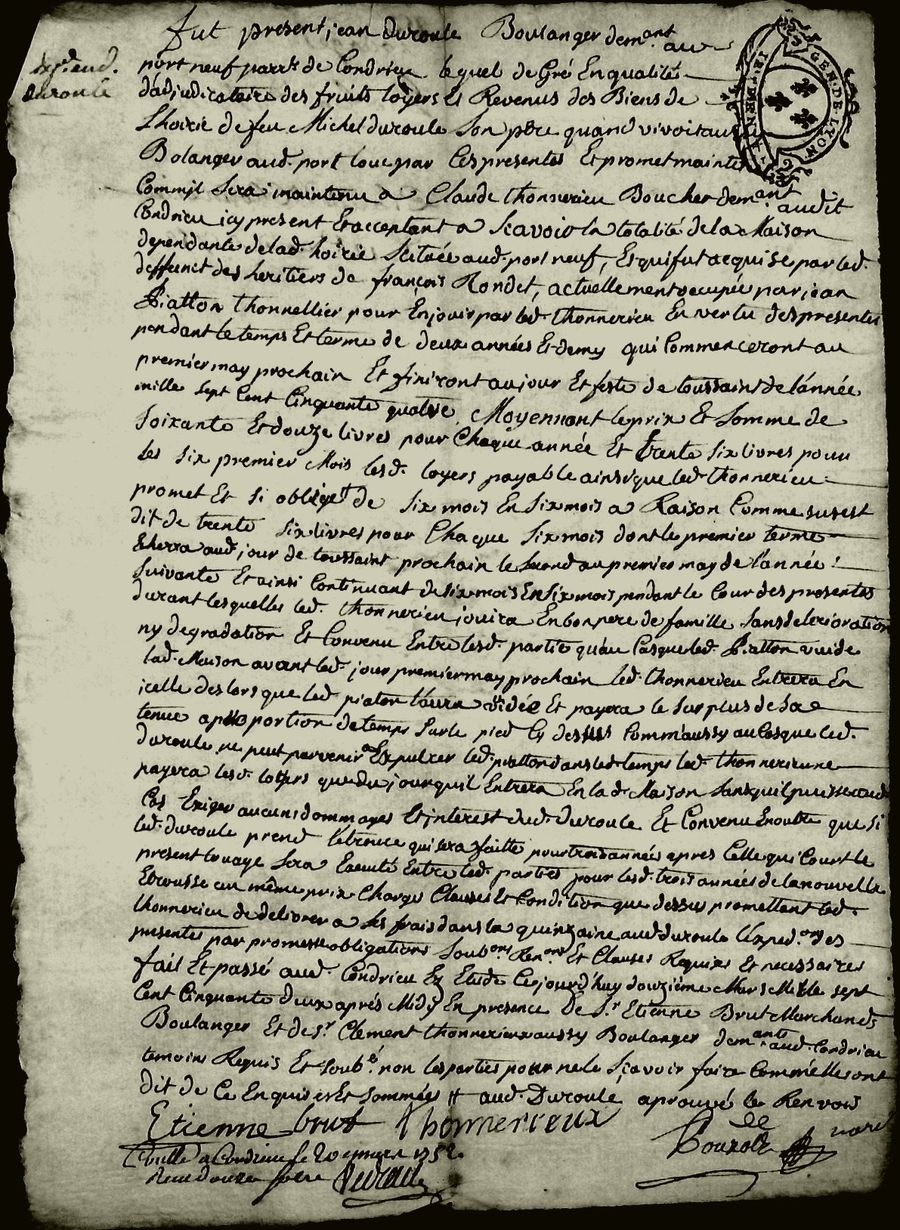 fut present jean Duroule Boulanger dem.ant au
port neuf parr.se de Condrieu lequel de Gré En qualité
d'adjudicataire des fruits loyers Et Revenus des Biens de
L'hoirie de feu Michel duroule Son père quand vivoit aussy
Bolanger aud. port loue par Ces presentes Et promet mainte
Comm'il Sera maintenu a Claude thonnerieu Boucher dem.ant audit
Condrieu icy present Et acceptant a Scavoir la totalité de la Maison
dependante de lad. hoirie Scituée aud. port neuf, Et qui fut acquise par led.
deffunct des heritiers de françois Rondet, actuellement occupée par jean
Piatton thonnellier pour En jouir par led. thonnerieu En vertu des presentes
pendant le temps Et terme de deux années Et demy qui Commenceront au
premier may prochain Et finiront au jour Et feste de toussaint de l'année
mille sept Cent Cinquante quatre, Moyennant le prix Et Somme de
Soixante Et douze livres pour Chaque année Et trente six livres pour
les six premier Mois lesd. loyers payable ainsi que led. thonnerieu
promet Et si oblige de six mois En six mois a Raison Comme sus est
dit de trente six livres pour Chaque six mois dont le premier terme
Echerra aud. jour de toussaint prochain le second au premier may de l'année
suivante Et ainsi Continuant de six mois En six mois pendant le Cour des presentes
durant lesquelles led. thonnerieu jouira En bon pere de famille sans deterioration
ny degradation Et Convenu Entre lesd. partie qu'au Cas que led. Piatton vuide
lad. Maison avant led. jour premier may prochain led. thonnerieu Entrera En
icelle des lors que led. piaton l'aura vidée Et payera le surplus de Sa
tenue a proportion de temps sur le pied Cy dessus Comm'aussy au Cas que led.
duroule ne put parvenir a Expulcer led. piatton dans led. temps led. thonnerieu ne
payera lesd. loyers que du jour quil Entrera En lad. Maison sans quil puisse aud.
Cas Exiger aucuns dommages Et interest dud. duroule Et Convenu En outre que si
led. duroule prend l'etrousse qui sera faitte pour trois années apres Celle qui Court le
present louage Sera Executé Entre led. parties pour lesd. trois années de la nouvelle
Etrousse au même prix Charges Clauses Et Condition que dessus promettant led.
thonnerieu de delivrer a ses frais dans la quinzaine aud. duroule l'exped.on des
presentes par promesse obligations Soub.ons Ren.ons Et Clauses Requises Et necessaires
fait Et passé aud. Condrieu Ez Etude Ce jourd'huy douzième Mars Mille sept
Cent Cinquante deux aprés Midy En presence De S.r Etienne Brut Marchand
Boulanger Et de s.r Clement thonnerieux aussy Boulanger dem.ants aud. Condrieu
temoins Requis Et soub.é non les parties pour ne le Sçavoir faire Comm'elles ont
dit de Ce Enquises Et Sommés aud. Duroule aprouvé le Renvois
Etienne brut thonnerieux
Controllé a Condrieu le 20 mars 1752.
Receu douze sols
GEN. DE LYON